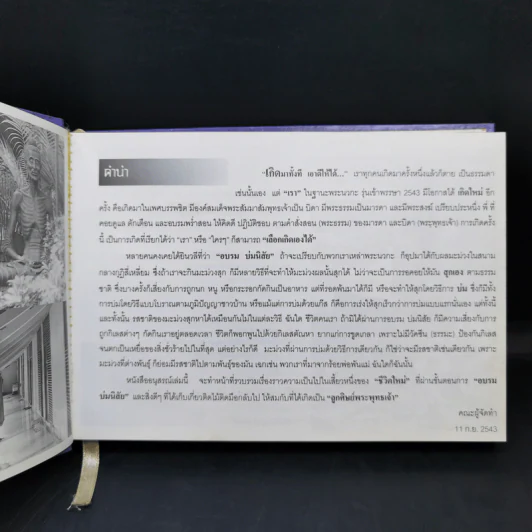 คำนำ
"เกิดมาทั้งที เอาดีให้ได้..." เราทุกคนเกิดมาครั้งหนึ่งแล้วก็ตาย เป็นธรรมดา
เช่นนั้นเอง แต่ "เรา" ในฐานะพระนวกะ รุ่นเข้าพรรษา 2543 มีโอกาสได้ เกิดใหม่ อีก
ครั้ง คือเกิดมาในเพศบรรพชิต มีองค์สมเด็จพระสัมมาสัมพุทธเจ้าเป็น บิดา มีพระธรรมเป็นมารดา และมีพระสงฆ์ เปรียบประหนึ่ง พี่ ที่
คอยดูแล ตักเตือน และอบรมพร่ำสอน ให้คิดดี ปฏิบัติชอบ ตามคำสั่งสอน (พระธรรม) ของมารดา และบิดา (พระพุทธเจ้า) การเกิดครั้ง
นี้ เป็นการเกิดที่เรียกได้ว่า "เรา" หรือ "ใครๆ" ก็สามารถ "เลือกเกิดเองได้"
หลายคนคงเคยได้ยินวลีที่ว่า "อบรม บ่มนิสัย" ถ้าจะเปรียบกับพวกเราเหล่าพระนวกะ ก็อุปมาได้กับผลมะม่วงในสนาม
กลางกุฏิสี่เหลี่ยม ซึ่งถ้าเราจะกินมะม่วงสุก ก็มีหลายวิธีที่จะทำให้มะม่วงผลนั้นสุกได้ ไม่ว่าจะเป็นการรอคอยให้มัน สุกเอง ตามธรรม
ชาติ ซึ่งบางครั้งก็เสี่ยงกับการถูกนก หนู หรือกระรอกกัดกินเป็นอาหาร แต่ที่รอดพ้นมาได้ก็มี หรือจะทำให้สุกโดยวิธีการ บ่ม ซึ่งก็มีทั้ง
การบ่มโดยวิธีแบบโบราณตามภูมิปัญญาชาวบ้าน หรือแม้แต่การบ่มด้วยแก๊ส ก็คือการเร่งให้สุกเร็วกว่าการบ่มแบบแรกนั่นเอง แต่ทั้งนี้
และทั้งนั้น รสชาติของมะม่วงสุกหาได้เหมือนกันไม่ในแต่ละวิธี ฉันใด ชีวิตคนเรา ถ้ามิได้ผ่านการอบรม บ่มนิสัย ก็มีความเสี่ยงกับการ
ถูกกิเลสต่างๆ กัดกินเราอยู่ตลอดเวลา ชีวิตก็พอกพูนไปด้วยกิเลสตัณหา ยากแก่การขูดเกลา เพราะไม่มีวัคซีน (ธรรมะ) ป้องกันกิเลส
จนตกเป็นเหยื่อของสิ่งชั่วร้ายไปในที่สุด แต่อย่างไรก็ดี มะม่วงที่ผ่านการบ่มด้วยวิธีการเดียวกัน ก็ใช่ว่าจะมีรสชาติเช่นเดียวกัน เพราะ
มะม่วงที่ต่างพันธุ์ ก็ย่อมมีรสชาติไปตามพันธุ์ของมัน เฉกเช่น พวกเราที่มาจากร้อยพ่อพันแม่ ฉันใดก็ฉันนั้น
หนังสืออนุสรณ์เล่มนี้ จะทำหน้าที่รวบรวมเรื่องราวความเป็นไปในเสี้ยวหนึ่งของ "ชีวิตใหม่" ที่ผ่านขั้นตอนการ "อบรม
บ่มนิสัย" และสิ่งดีๆ ที่ได้เก็บเกี่ยวติดไม้ติดมือกลับไป ให้สมกับที่ได้เกิดเป็น "ลูกศิษย์พระพุทธเจ้า"
คณะผู้จัดทำ
11 ก.ย. 2543